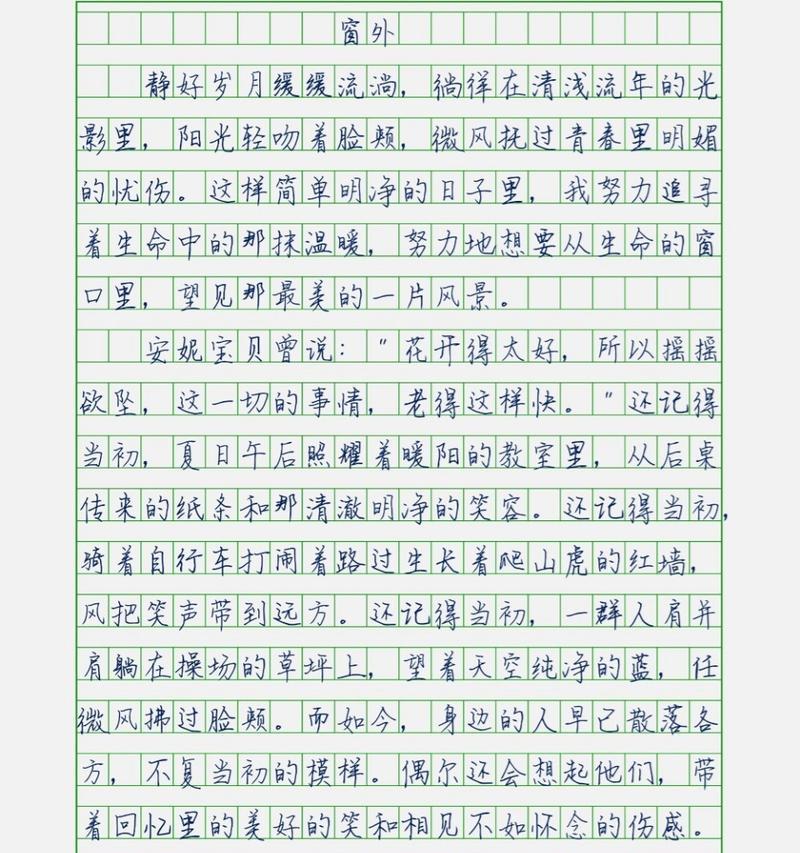 窗外
静好岁月缓缓流淌，徜徉在清浅流年的光
影里，阳光轻吻着脸颊，微风抚过青春里明媚
的忧伤。这样简单明净的日子里，我努力追寻
着生命中的那抹温暖，努力地想要从生命的窗
口里，望见那最美的一片风景。
安妮宝贝曾说："花开得太好，所以摇摇
欲坠，这一切的事情，老得这样快。"还记得
当初，夏日午后照耀着暖阳的教室里，从后桌
传来的纸条和那清澈明净的笑容。还记得当初，
骑着自行车打闹着路过生长着爬山虎的红墙，
风把笑声带到远方。还记得当初，一群人肩并
肩躺在操场的草坪上，望着天空纯净的蓝，任
微风拂过脸颊。而如今，身边的人早已散落各
方，不复当初的模样。偶尔还会想起他们，带
着回忆里的美好的笑和相见不如怀念的伤感。